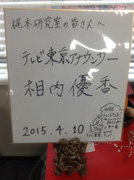 梶本研究室の皆さんへ
テレビ東京アナウンサー
相内優香
2015.4.10